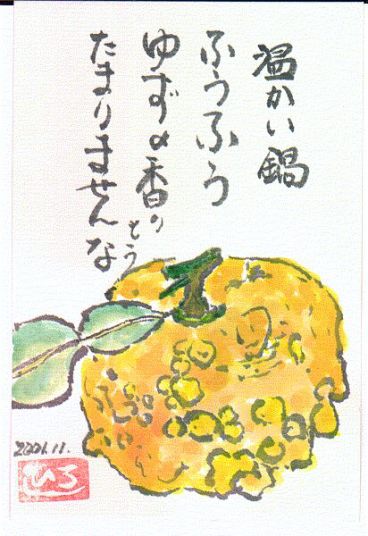 温かい鍋
ふうふう
ゆずの香り
もう
たまりませんな
2001.11.
ひろ